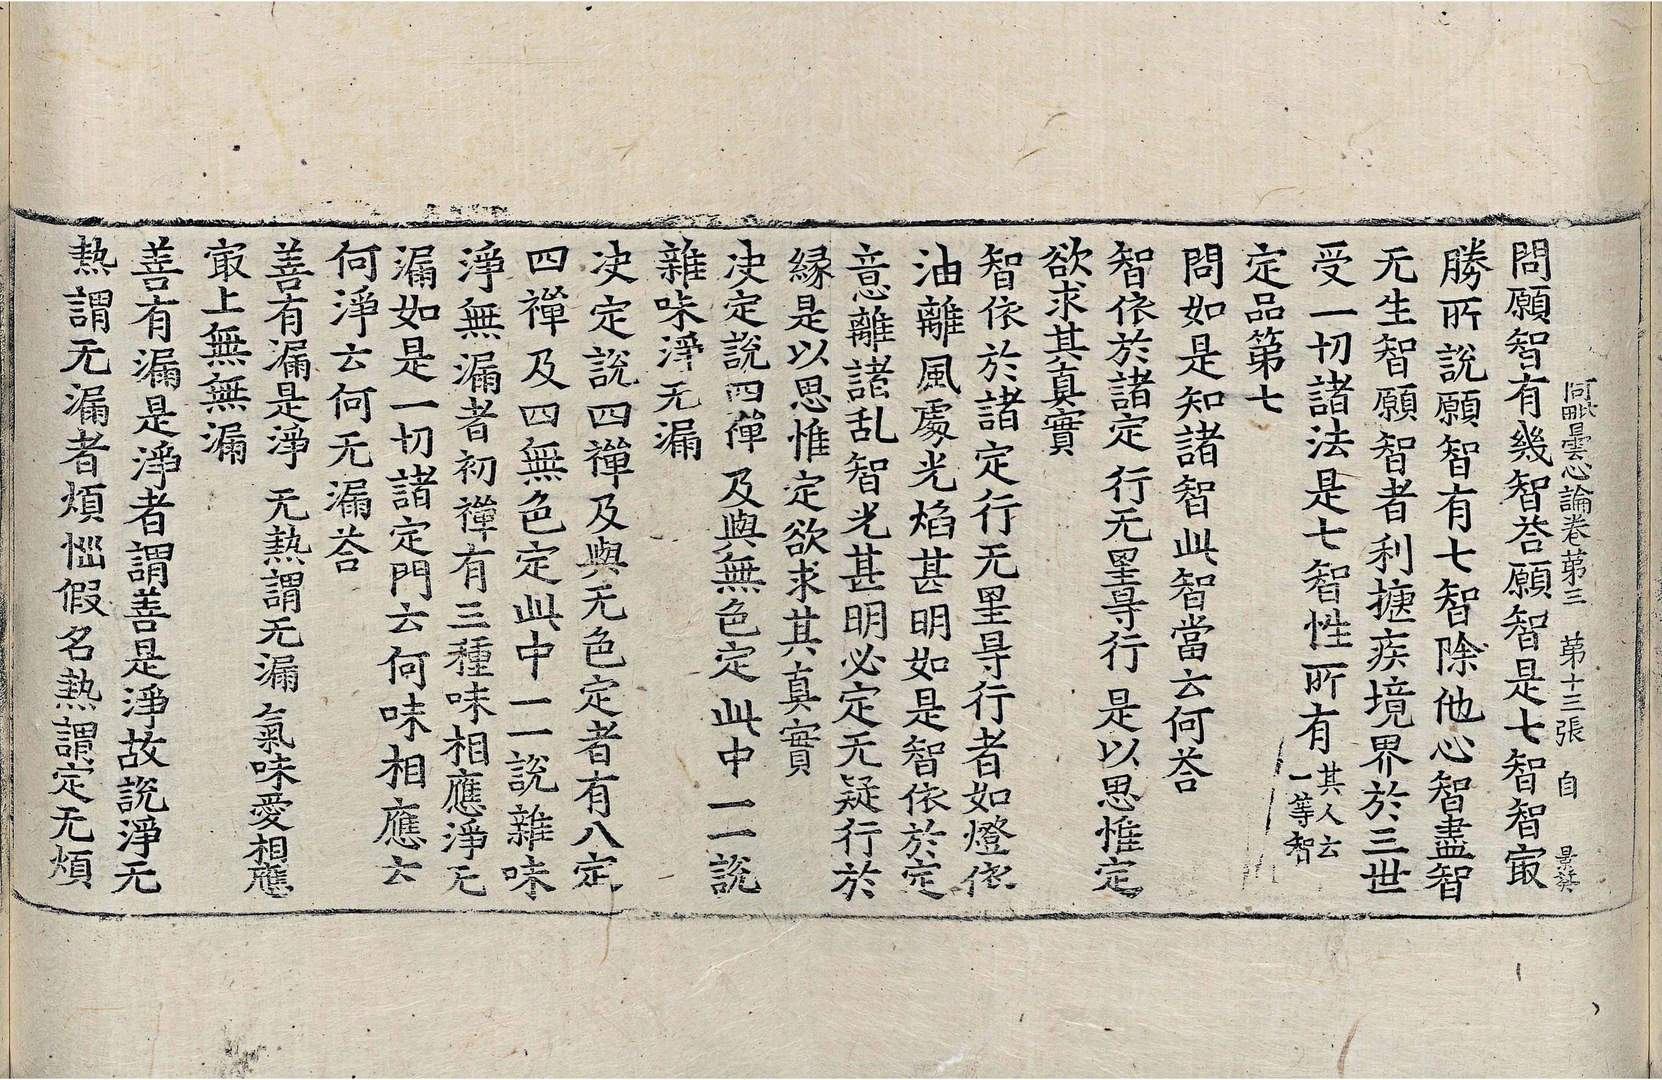 阿毗曇心論卷第三 第十三張 自
問願智有幾智荅願智是七智智㝡
勝所說願智有七智除他心智盡智
无生智願智者利捷疾境界於三世
受一切諸法是七智性所有其人云一等智
定品第七
問如是知諸智此智當云何荅
智依於諸定 行无罣㝵行 是以思惟定
欲求其真實
智依於諸定行无罣㝵行者如燈依
油離風處光焰甚明如是智依於定
意離諸乱智光甚明必定无疑行於
緣是以思惟定欲求其真實
决定說四禪 及與無色定 此中一一說
雜味淨无漏
决定說四禪及與无色定者有八定
四禪及四無色定此中一一說雜味
淨無漏者初禪有三種味相應淨无
漏如是一切諸定門云何味相應云
何淨云何无漏荅
善有漏是淨 无熱謂无漏 氣味愛相應
㝡上無無漏
善有漏是淨者謂善是淨故說淨无
熱謂无漏者煩惱假名熱謂定无煩